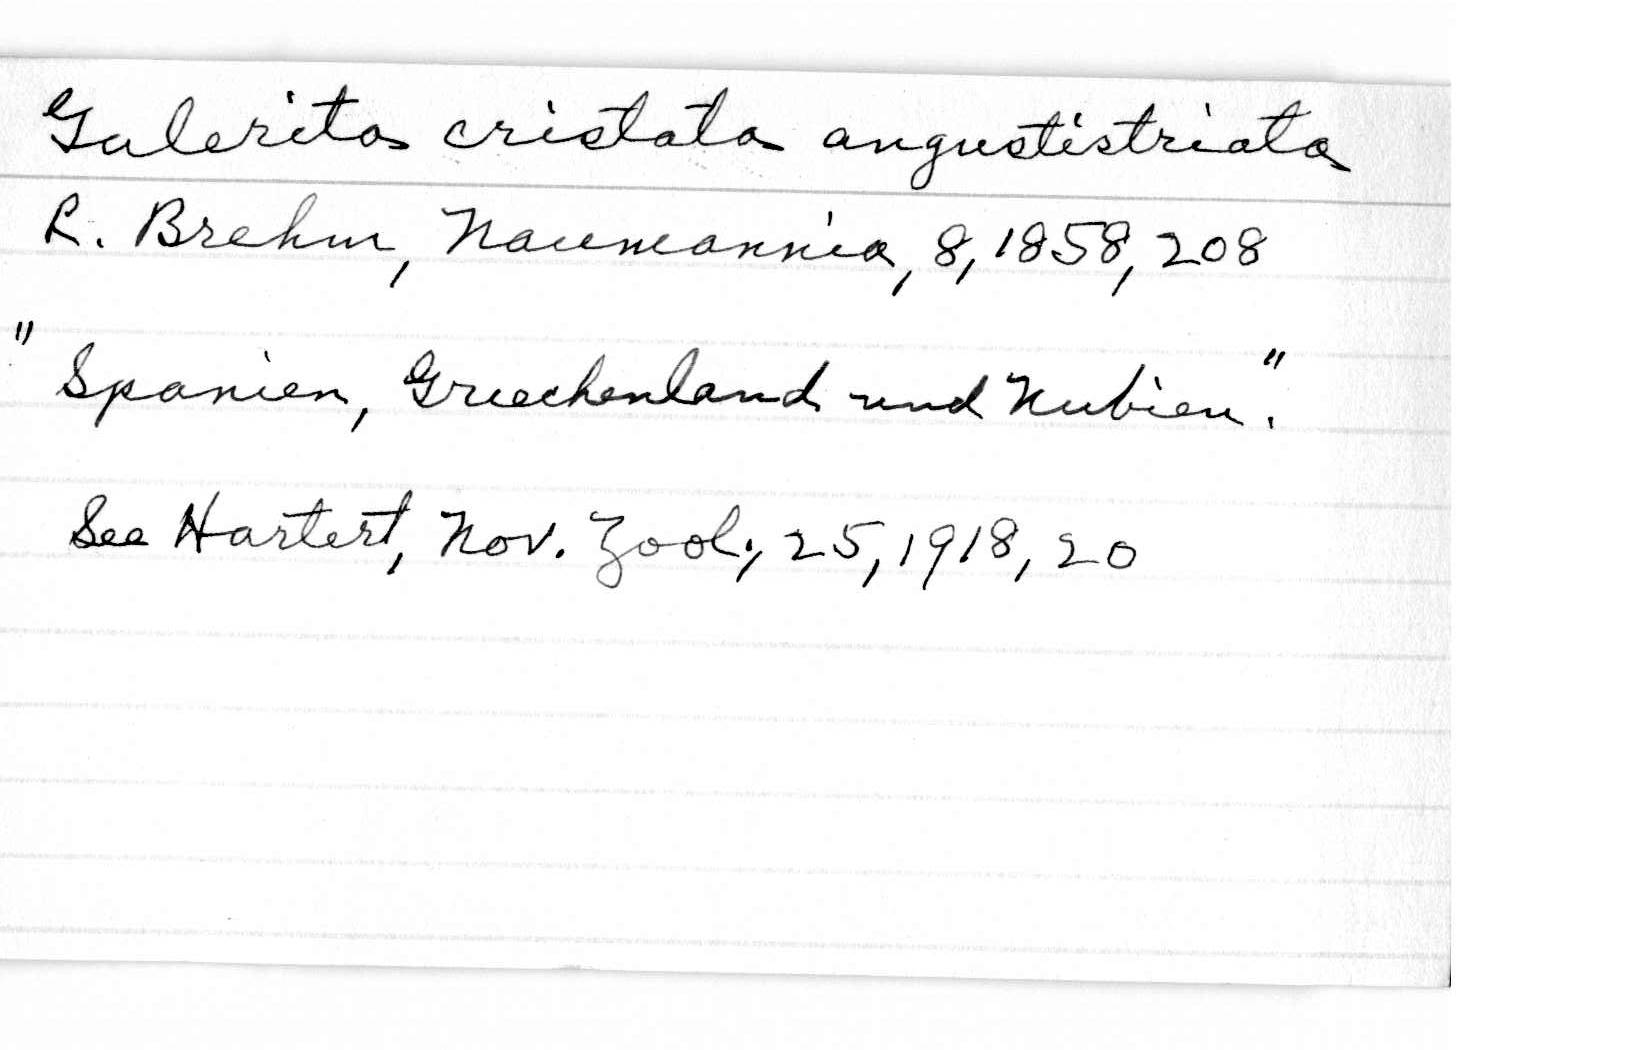 Galerita cristata angustistriata
R. Brehm, Naumannia, 8, 1858, 208
"Spanien, Griechenland und Nubien."
See Hartert, Nov. Zool., 25, 1918, 20